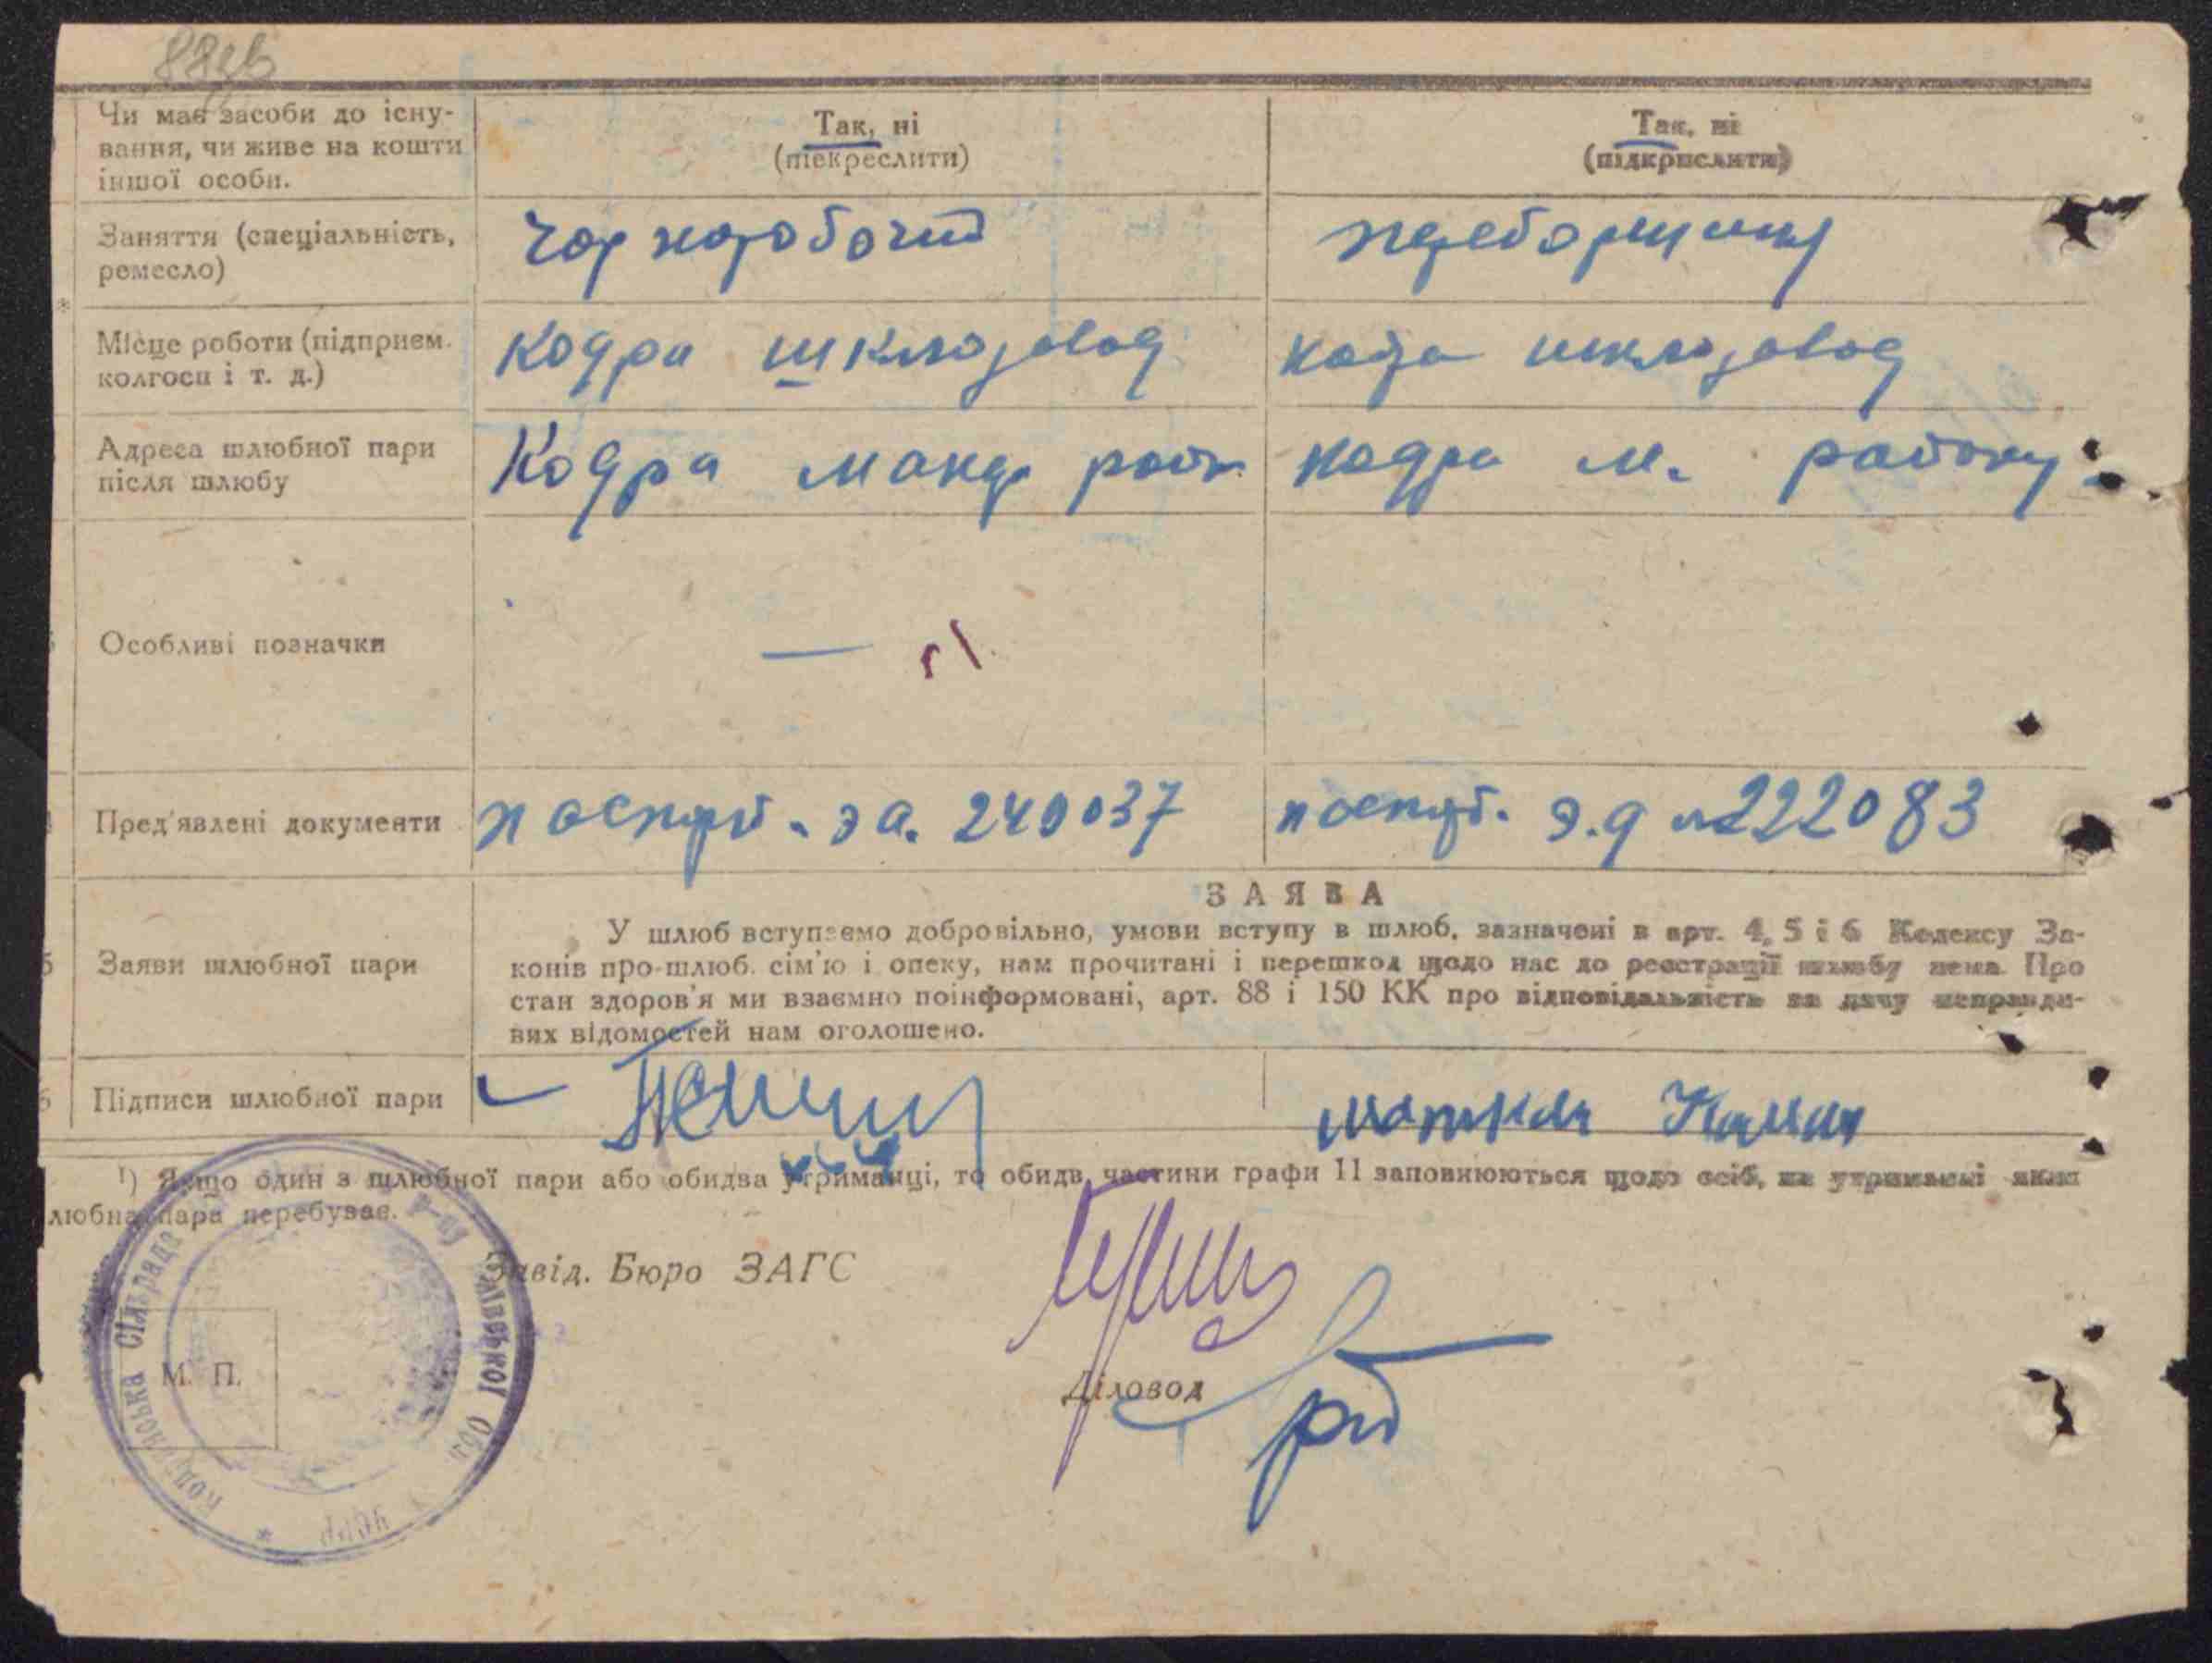 88зв
Чи має засоби до існу-
вання, чи живе на кошти
іншої особи.
Так, ні
(підкреслити)
Так, ні
(підкреслити)
Заняття (спеціальність,
ремесло)
Чорноробочий
переборщиця
Місце роботи (підприєм.
колгосп і т. д.)
Кодра шклозавод
кодра шклозавод
Адреса шлюбної пари
після шлюбу
Кодра макар район
кодра м. району
Особливі позначки
—
Пред'явлені документи
паспорт. эа. 240037
паспорт. э.д № 222083
Заяви шлюбної пари
ЗАЯВА
У шлюб вступаємо добровільно, умови вступу в шлюб, зазначені в арт. 4, 5 і 6 Кодексу За-
конів про шлюб, сім'ю і опеку, нам прочитані і перешкод щодо нас до реєстрації шлюбу нема. Про
стан здоров'я ми взаємно поінформовані, арт. 88 і 150 КК про відповідальність за дачу неправди-
вих відомостей нам оголошено.
Підписи шлюбної пари
¹) Якщо один з шлюбної пари або обидва утриманці, то обидв. частини графи 11 заповнюються щодо осіб, на утриманні яких
любна пара перебуває.
Завід. Бюро ЗАГС
Діловод
М. П.
сільрада
Київської Обл.
УСРР